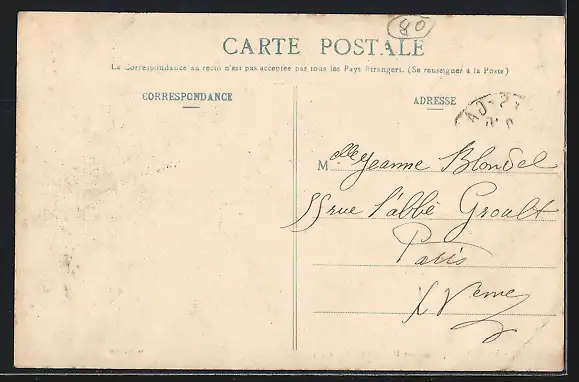 80
CARTE POSTALE
La Correspondance au recto n'est pas acceptée par tous les Pays Étrangers. (Se renseigner à la Poste)
CORRESPONDANCE
ADRESSE
Melle Jeanne Blondel
55 rue l'abbé Groult
Paris
XVeme